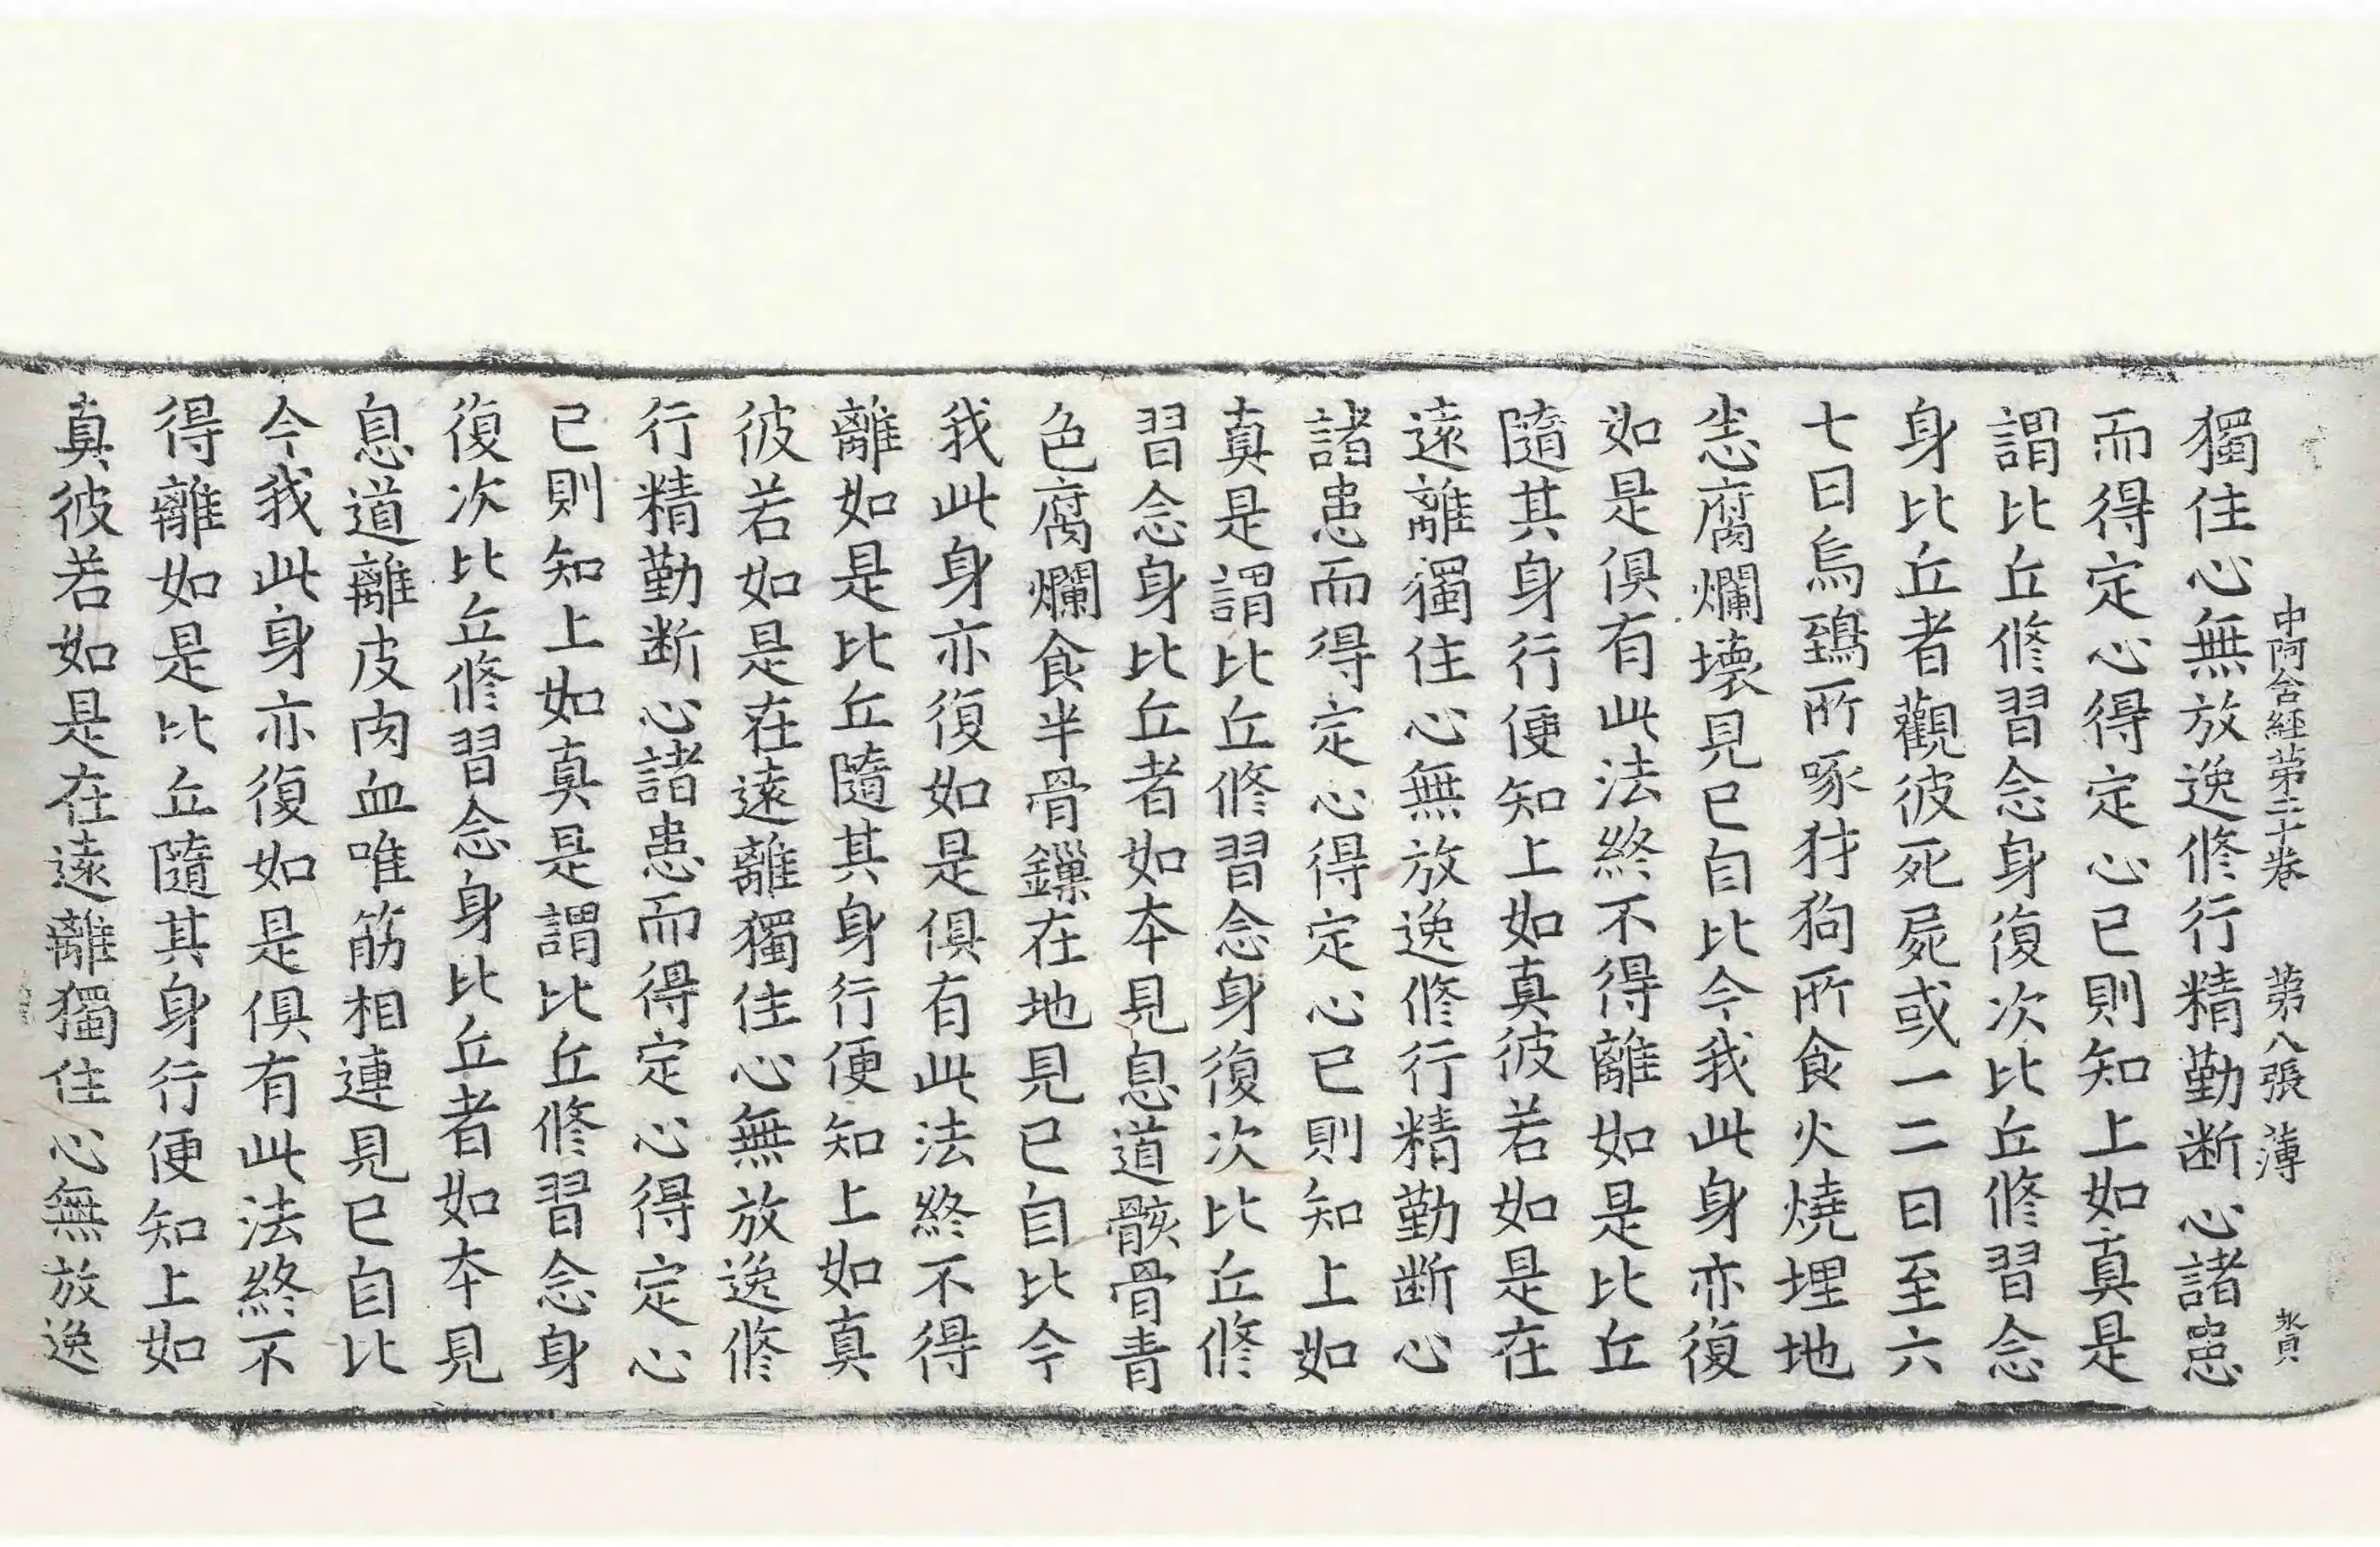 中阿含經第二十卷 第八張 薄
獨住心無放逸修行精勤断心諸患
而得定心得定心已則知上如真是
謂比丘修習念身復次比丘修習念
身比丘者觀彼死屍或一二日至六
七日烏鵄所啄犲狗所食火燒埋地
悉腐爛壞見已自比今我此身亦復
如是俱有此法終不得離如是比丘
隨其身行便知上如真彼若如是在
遠離獨住心無放逸修行精勤断心
諸患而得定心得定心已則知上如
真是謂比丘修習念身復次比丘修
習念身比丘者如本見息道骸骨青
色腐爛食半骨鏁在地見已自比今
我此身亦復如是俱有此法終不得
離如是比丘隨其身行便知上如真
彼若如是在遠離獨住心無放逸修
行精勤断心諸患而得定心得定心
已則知上如真是謂比丘修習念身
復次比丘修習念身比丘者如本見
息道離皮肉血唯筋相連見已自比
今我此身亦復如是俱有此法終不
得離如是比丘隨其身行便知上如
真彼若如是在遠離獨住心無放逸